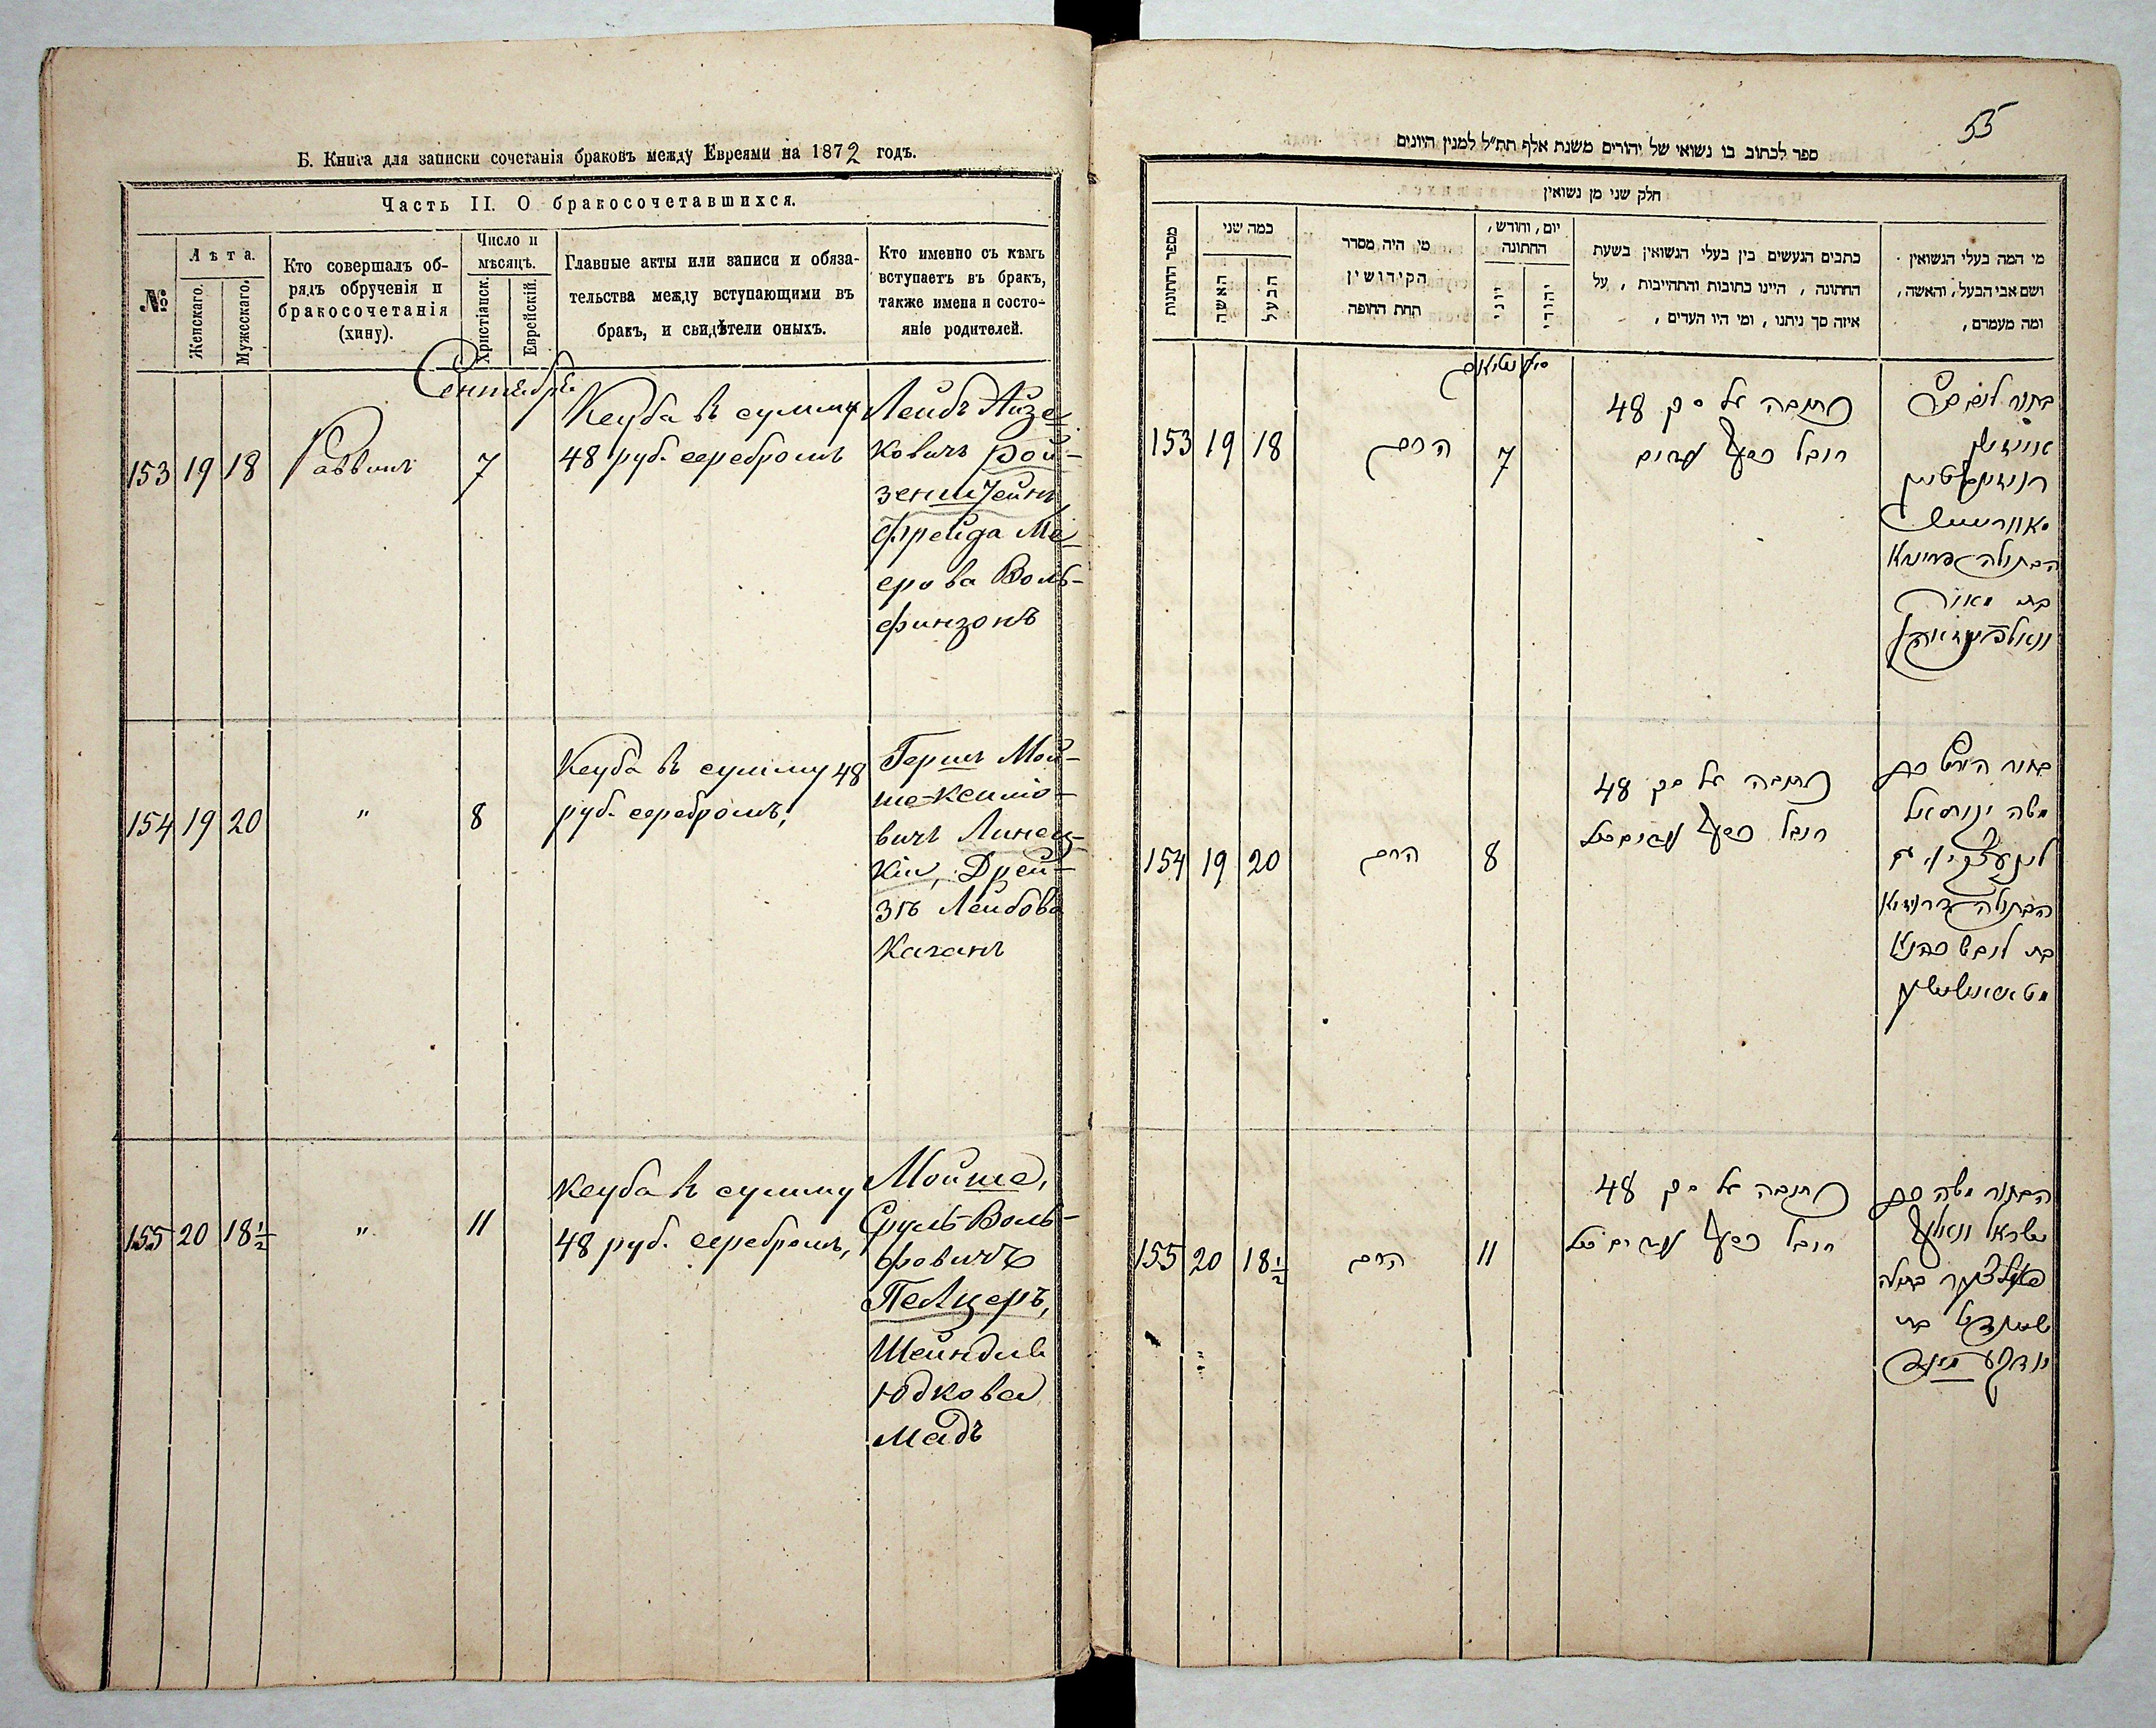 Б. Книга для записки сочетанія браковъ между Евреями на 1872 годъ.
Часть II. О бракосочетавшихся.
№
Лѣта.
Женскаго.
Мужескаго.
Кто совершалъ об-
рядъ обрученія и
бракосочетанія
(хину).
Число и
мѣсяцъ.
Христіанск.
Еврейскій.
Главные акты или записи и обяза-
тельства между вступающими въ
бракъ, и свидѣтели оныхъ.
Кто именно съ кѣмъ
вступаетъ въ бракъ,
также имена и состо-
яніе родителей.
Сентябрь
153 19 18 Раввинъ 7
Кеуба въ сумму
48 руб. серебромъ
Лейбъ Айзе-
ковичъ Рой-
зенштейнъ,
Фрейда Ме-
ерова Воль-
финзонъ
154 19 20 " 8
Кеуба въ сумму 48
руб. серебромъ,
Гершъ Мой-
вичъ Линец-
кій, Дрей-
зя Лейбова
Каганъ
155 20 18½ " 11
Кеуба въ сумму
48 руб. серебромъ,
Мойше,
Сруль-Воль-
фовичъ
Пелцеръ,
Шейндля
Юдкова
Мадъ
55
ספר לכתוב בו נשואי של יהודים משנת אלף תת״ל למנין היונים
חלק שני מן נשואין
מספר החתונות
כמה שני
האשה
הבעל
מי היה מסדר
הקידושין
תחת החופה
יום, וחודש,
החתונה
יוני
יהודי
כתבים הנעשים בין בעלי הנשואין בשעת
החתונה, היינו כתובות והתחייבות, על
איזה סך ניתנו, ומי היו העדים,
מי המה בעלי הנשואין
ושם אבי הבעל, והאשה,
ומה מעמדם,
153 19 18 הרב 7
כתובה על סך 48
רובל כסף
הבתולה פריידא
בת מאיר
154 19 20 הרב 8
כתובה על סך 48
רובל כסף
בחור הירש בן
משה
הבתולה דרייזא
בת לייבש כהנא
155 20 18½ הרב 11
כתובה על סך 48
רובל כסף
הבחור משה בן
ישראל וואלף
פעלצער בתולה
שיינדיל בת
יודקע מאד